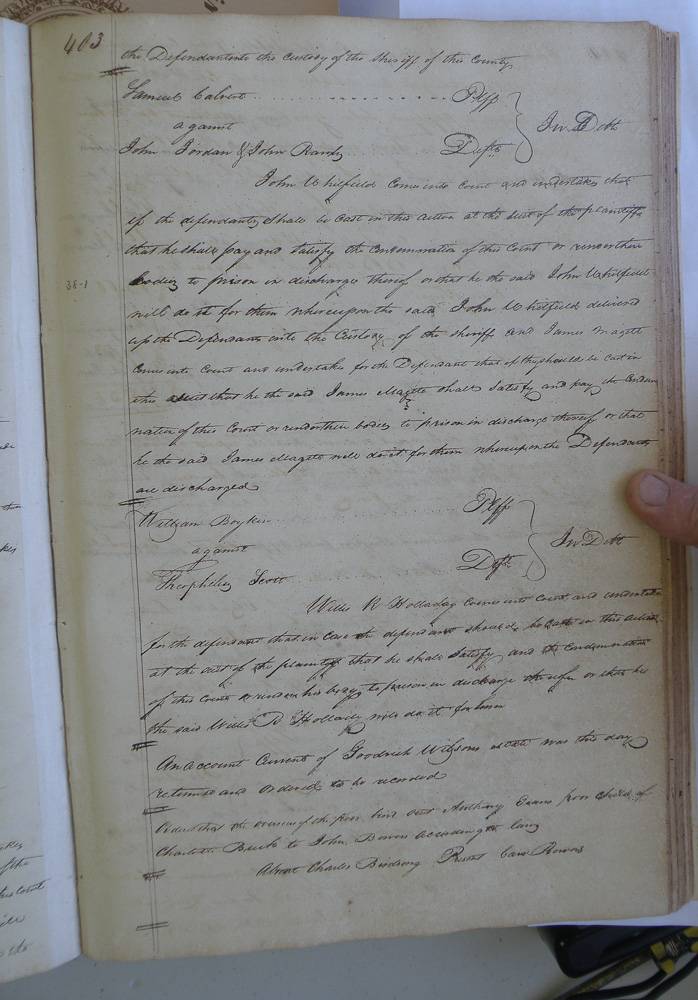 403
the Defendant into the custody of the Sheriff of this County
Samuel Calvert Plff
against In Debt
John Jordan & John Randy Defts
John Whitfield Comes into Court and undertakes that
if the defendants shall be Cast in this action at the suit of the plaintiff
that he shall pay and satisfy the Condemnation of this Court or render their
bodies to prison in discharge thereof or that he the said John Whitfield
38-1
will do it for them whereupon the said John Whitfield delivered
up the Defendants into the Custody of the Sheriff and James Magett
comes into Court and undertakes for the Defendant that if they should be cast in
this suit that he the said James Magett shall satisfy and pay the Condem
nation of this Court or render their bodies to prison in discharge thereof or that
he the said James Magett will do it for them whereupon the Defendants
are discharged
William Boykin Plff
against In Debt
Theophilus Scott Deft
Willis R Holladay Comes into Court and undertakes
for the defendant that in Case the defendant should be Cast in this action
at the suit of the plaintiff that he shall satisfy and the Condemnation
of this Court or render his body to prison in discharge thereof or that he
the said Willis R Holladay will do it for him
An account Current of Goodrich Wilsons estate was this day
returned and Ordered to be recorded
Ordered that the overseers of the poor bind out Anthony Evans poor child of
Charlotte Buck to John Bowers according to law
Absent Charles Birdsong Present Carr Bowers